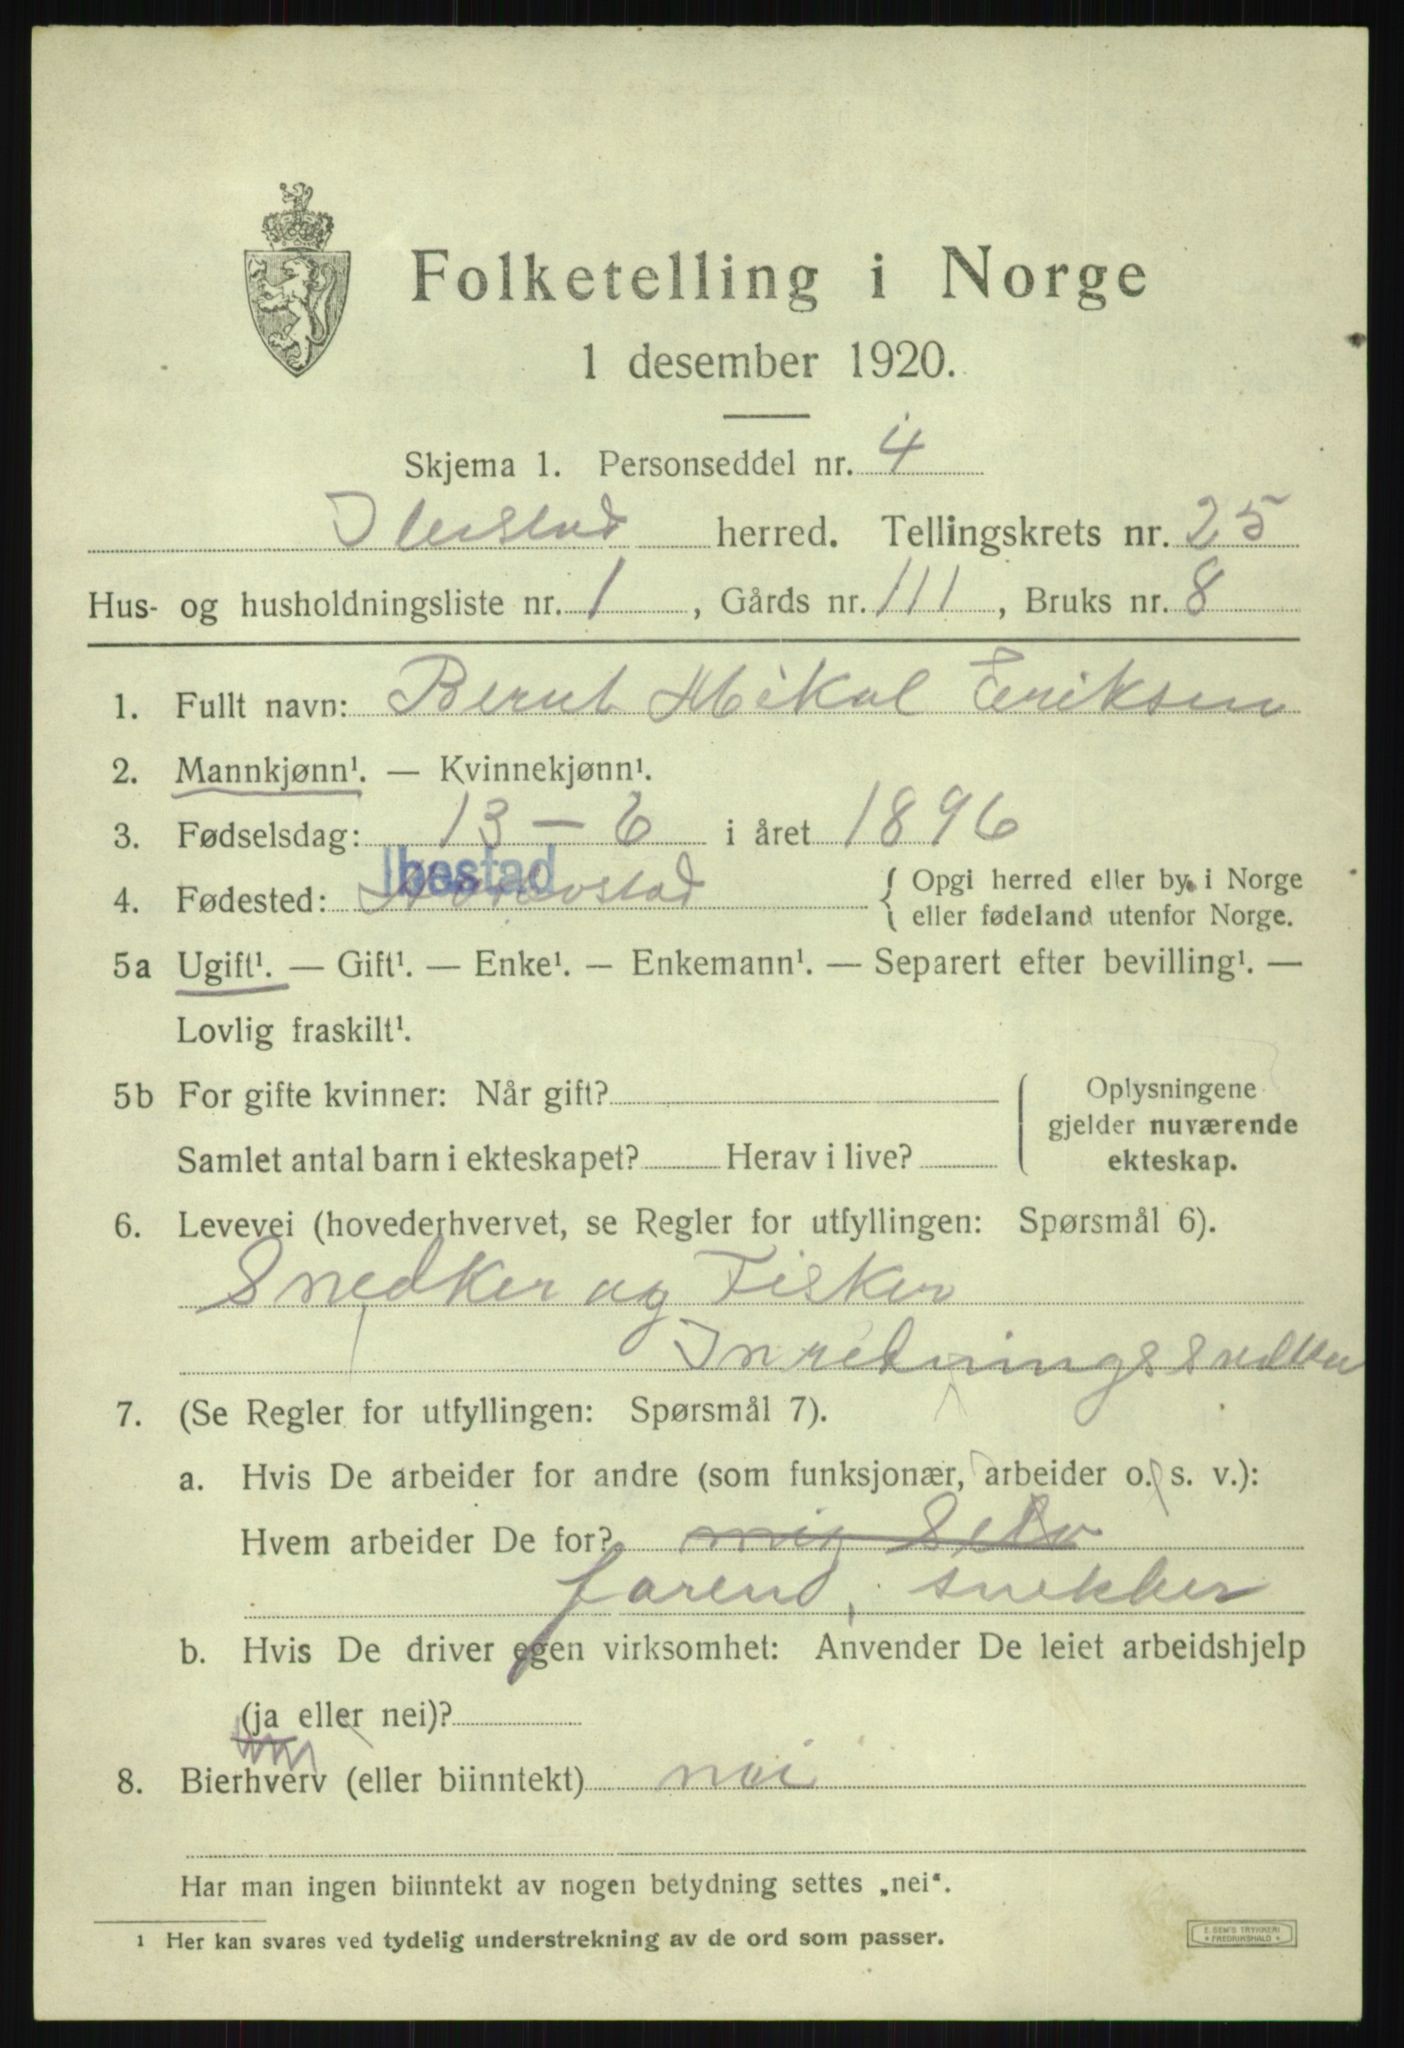 Folketelling i Norge
1 desember 1920.
Skjema 1. Personseddel nr. 4
Ibestad herred. Tellingskrets nr. 25
Hus- og husholdningsliste nr. 1, Gårds nr. 111, Bruks nr. 8
1. Fullt navn: Bernt Mikal Eriksen
2. Mannkjønn¹. — Kvinnekjønn¹.
3. Fødselsdag: 13 – 6 i året 1896
Ibestad
4. Fødested: { Opgi herred eller by i Norge
eller fødeland utenfor Norge.
5a Ugift¹. — Gift¹. — Enke¹. — Enkemann¹. — Separert efter bevilling¹. —
Lovlig fraskilt¹.
5b For gifte kvinner: Når gift?
Samlet antal barn i ekteskapet? Herav i live?
Oplysningene
gjelder nuværende
ekteskap.
6. Levevei (hovederhvervet, se Regler for utfyllingen: Spørsmål 6).
Snedker og Fisker
Inredningssnedker
7. (Se Regler for utfyllingen: Spørsmål 7).
a. Hvis De arbeider for andre (som funksjonær, arbeider o. s. v.):
Hvem arbeider De for? mig Selv
farend, snekker
b. Hvis De driver egen virksomhet: Anvender De leiet arbeidshjelp
(ja eller nei)?
8. Bierhverv (eller biinntekt) nei
Har man ingen biinntekt av nogen betydning settes „nei“.
¹ Her kan svares ved tydelig understrekning av de ord som passer.
E. SEM'S TRYKKERI
* FREDRIKSHALD *